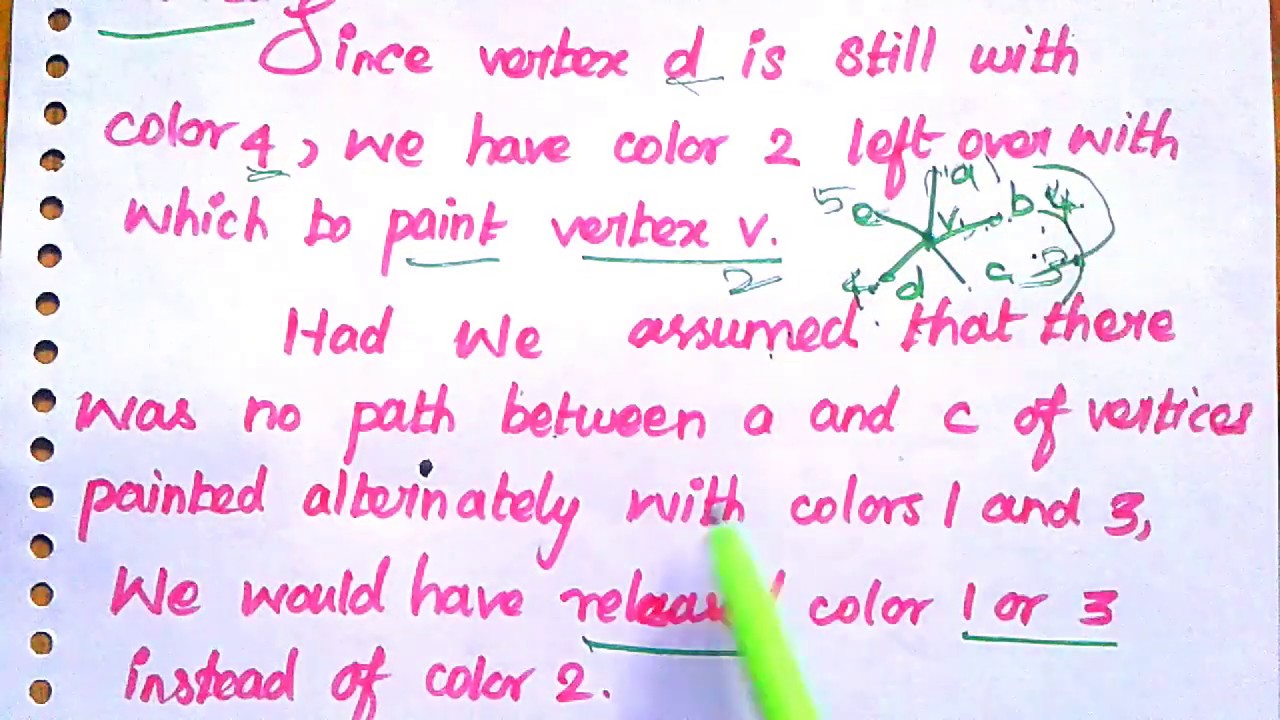 Since vertex d is still with
color 4, we have color 2 left over with
which to paint vertex v.
2
5 e a 1 v b 4
4 d c 3
Had we assumed that there
was no path between a and c of vertices
painted alternately with colors 1 and 3,
We would have color 1 or 3
instead of color 2.